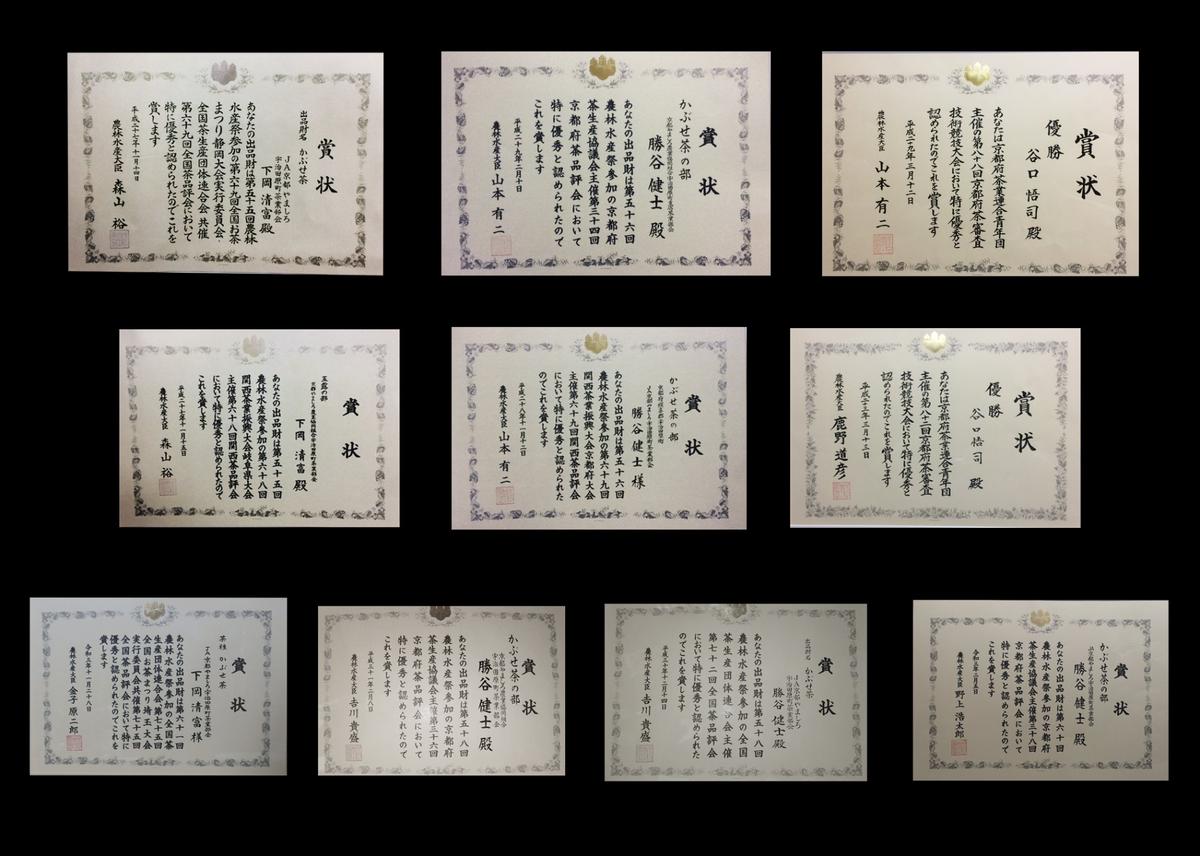 賞状
出品財名 かぶせ茶
JA京都やましろ
宇治田原町茶業部会
下岡 清富 殿
あなたの出品財は第五十五回農林
水産祭参加の第六十九回全国お茶
まつり静岡大会実行委員会、
全国茶生産団体連合会 共催
第六十九回全国茶品評会において
特に優秀と認められたのでこれを
賞します
平成二十七年十一月十四日
農林水産大臣 森山 裕
賞状
かぶせ茶の部
勝谷 健士 殿
あなたの出品財は第五十六回
農林水産祭参加の京都府
茶生産協議会主催第三十四回
京都府茶品評会において
特に優秀と認められたので
これを賞します
平成二十九年二月十日
農林水産大臣 山本 有二
賞状
優勝
谷口 悟司 殿
あなたは京都府茶業連合青年団
主催の第八十八回京都府茶審査
技術競技大会において特に優秀と
認められたのでこれを賞します
平成二十九年三月十二日
農林水産大臣 山本 有二
賞状
玉露の部
下岡 清富 殿
あなたの出品財は第五十五回
農林水産祭参加の第六十八回
関西茶業振興大会岐阜県大会
主催第六十八回関西茶品評会
において特に優秀と認められたので
これを賞します
平成二十七年十一月十五日
農林水産大臣 森山 裕
賞状
かぶせ茶の部
勝谷 健士 様
あなたの出品財は第五十六回
農林水産祭参加の第六十九回
関西茶業振興大会京都府大会
主催第六十九回関西茶品評会
において特に優秀と認められた
のでこれを賞します
平成二十八年十一月十二日
農林水産大臣 山本 有二
賞状
優勝
谷口 悟司 殿
あなたは京都府茶業連合青年団
主催の第八十二回京都府茶審査
技術競技大会において特に優秀と
認められたのでこれを賞します
平成二十三年三月十三日
農林水産大臣 鹿野 道彦
賞状
茶種 かぶせ茶
JA京都やましろ宇治田原町茶業部会
下岡 清富 様
あなたの出品財は第六十一回
農林水産祭参加の全国茶
生産団体連合会第七十五回
全国お茶まつり埼玉大会
実行委員会共催第七十五回
全国茶品評会において特に
優秀と認められたのでこれを
賞します
農林水産大臣 金子 原二郎
賞状
かぶせ茶の部
宇治田原町茶業部会
勝谷 健士 殿
あなたの出品財は第五十八回
農林水産祭参加の京都府
茶生産協議会主催第三十六回
京都府茶品評会において
特に優秀と認められたので
これを賞します
平成三十一年二月八日
農林水産大臣 吉川 貴盛
賞状
出品財名 かぶせ茶
JA京都やましろ
宇治田原町茶業部会
勝谷 健士 殿
あなたの出品財は第五十八回
農林水産祭参加の全国
茶生産団体連合会主催
第七十二回全国茶品評会
において特に優秀と認められた
のでこれを賞します
農林水産大臣 吉川 貴盛
賞状
かぶせ茶の部
勝谷 健士 殿
あなたの出品財は第六十回
農林水産祭参加の京都府
茶生産協議会主催第三十八回
京都府茶品評会において
特に優秀と認められたので
これを賞します
農林水産大臣 野上 浩太郎